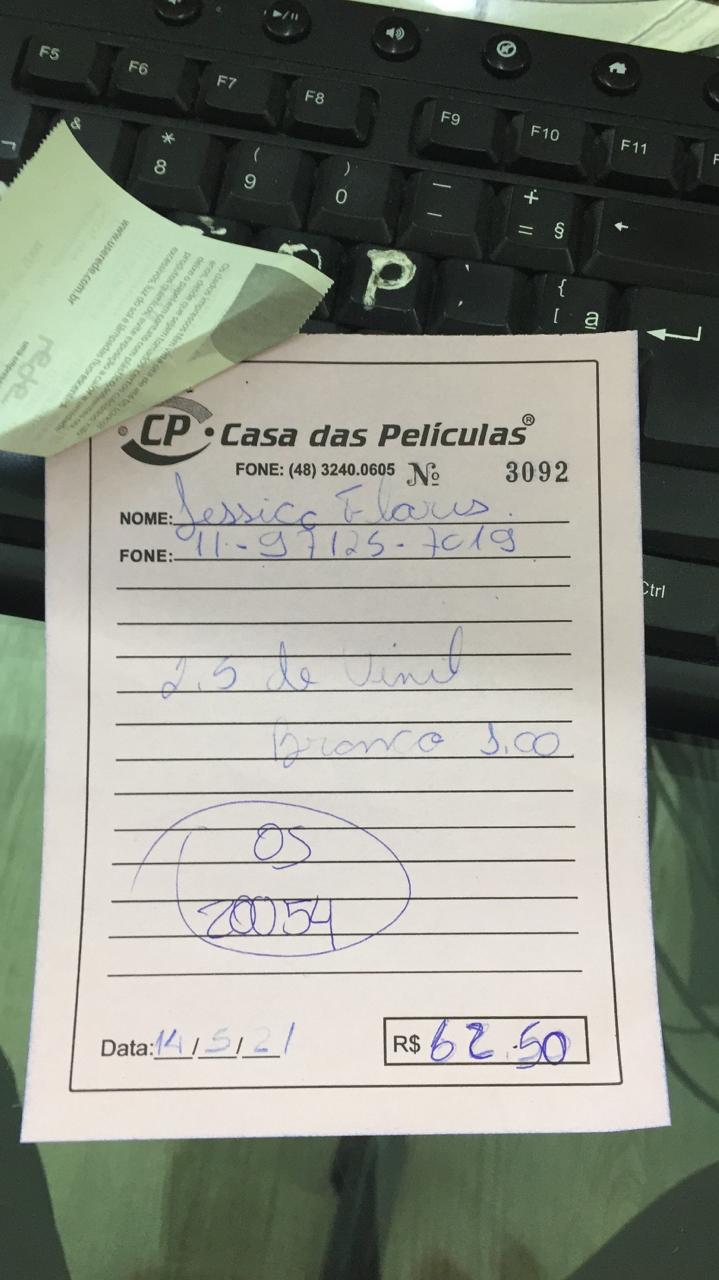 F5 F6 F7 F8 F9 F10 F11
& * 8 ( 9 ) 0 — – + = § ←
P { [ ª
www.userede.com.br
rede
CP Casa das Películas®
FONE: (48) 3240.0605 Nº 3092
NOME: Jessica
FONE: 11-97125-7019
2.5 de Vinil
Branco 1.00
OS
20054
Data: 14/5/21 R$ 62.50
Ctrl